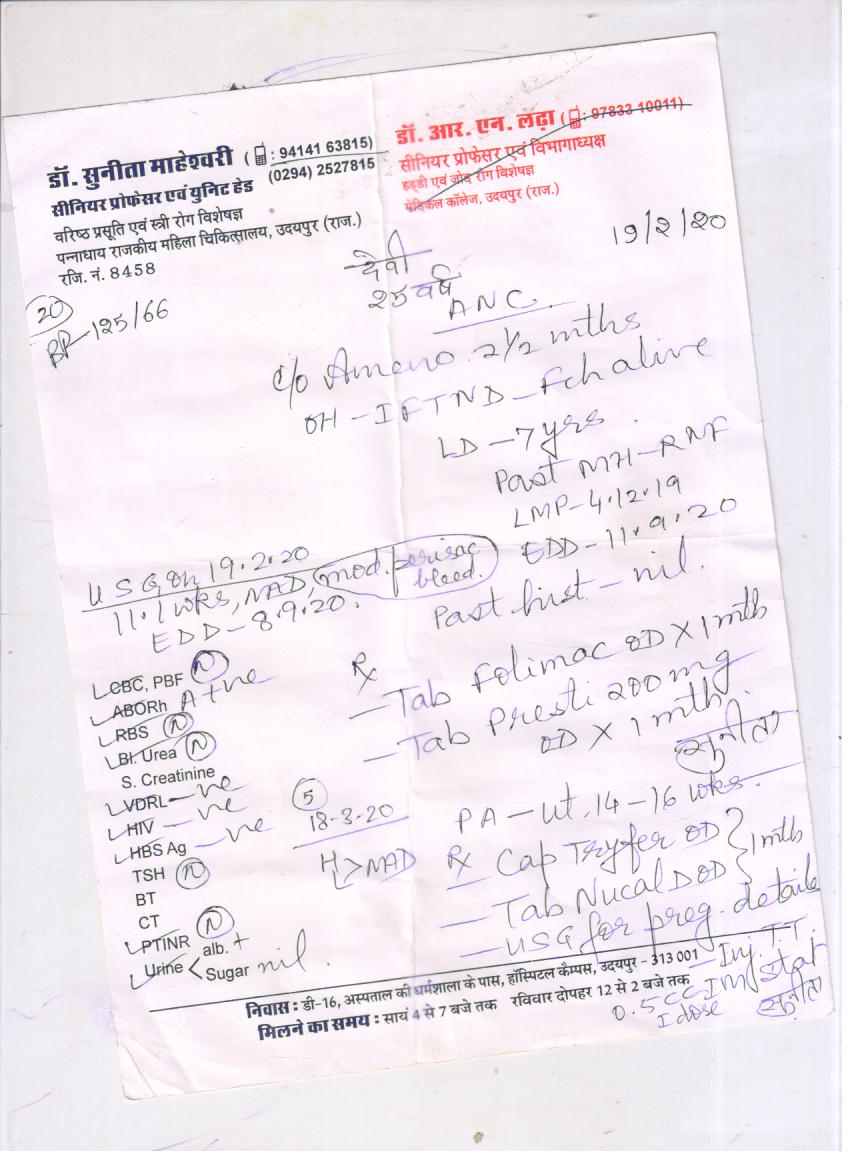 डॉ. सुनीता माहेश्वरी (: 94141 63815)
(0294) 2527815
सीनियर प्रोफेसर एवं यूनिट हेड
वरिष्ठ प्रसूति एवं स्त्री रोग विशेषज्ञ
पन्नाधाय राजकीय महिला चिकित्सालय, उदयपुर (राज.)
रजि. नं. 8458
डॉ. आर. एन. लढ़ा (: 97833 10011)
सीनियर प्रोफेसर एवं विभागाध्यक्ष
हड्डी एवं जोड़ रोग विशेषज्ञ
मेडिकल कॉलेज, उदयपुर (राज.)
19/2/20
देवी
25 वर्ष
20
BP-125/66
ANC
c/o Ameno. 2½ mths
OH - IFTND - Fch alive
LD - 7 yrs.
Past MH - RNF
LMP - 4.12.19
EDD - 11.9.20
Past hist - nil.
USG on 19.2.20
11.1 wks, NAD, mod. perisac bleed.
EDD - 8.9.20.
CBC, PBF N
ABORh A+ve
RBS N
Bl. Urea N
S. Creatinine
VDRL - ve
HIV - ve
HBS Ag - ve
TSH N
BT
CT
PTINR N
Urine < alb. +
Sugar nil.
Rx
- Tab Folimac OD X 1 mth
- Tab Presti 200 mg
OD X 1 mth.
सुनीता
5
18-3-20
H > NAD
PA - ut. 14-16 wks.
Rx Cap Tryfer OD } 1 mth
- Tab Nucal D OD
- USG for preg. details
- Inj. T.T.
0.5 CC IM stat
I dose
सुनीता
निवास : डी-16, अस्पताल की धर्मशाला के पास, हॉस्पिटल कैम्पस, उदयपुर - 313 001
मिलने का समय : सायं 4 से 7 बजे तक रविवार दोपहर 12 से 2 बजे तक